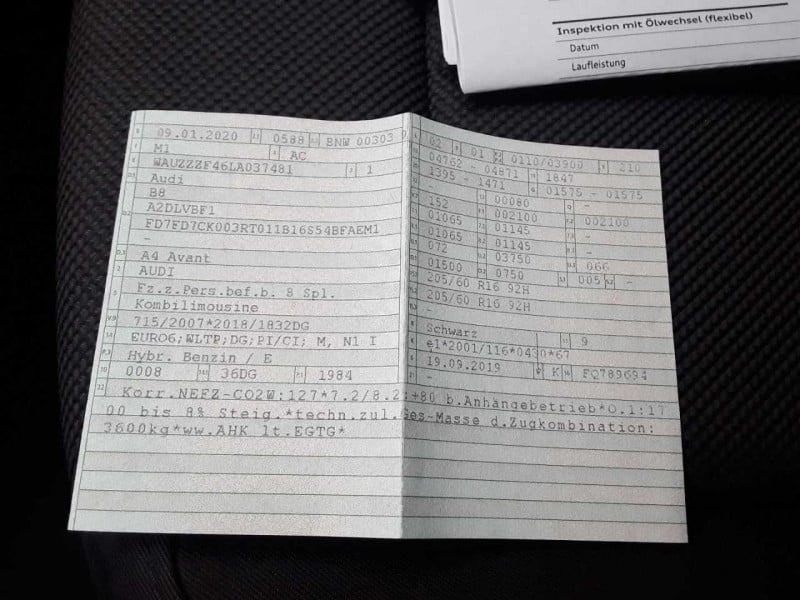 Inspektion mit Ölwechsel (flexibel)
Datum
Laufleistung
09.01.2020 0588 BNW 00303 0
M1 AC
WAUZZZF46LA037481 1
Audi
B8
A2DLVBF1
FD7FD7CK003RT011B16S54BFAEM1
-
A4 Avant
AUDI
Fz.z.Pers.bef.b. 8 Spl.
Kombilimousine
715/2007*2018/1832DG
EURO6;WLTP;DG;PI/CI; M, N1 I
Hybr. Benzin / E
0008 36DG 1984
02 01 0110/03900 210
04762 - 04871 1847
1395 - 1471 01575 - 01575
- 00080 -
152 002100 002100
01065 01145 -
01065 01145
072 03750 066
01500 0750 005 -
205/60 R16 92H
205/60 R16 92H
-
Schwarz 9
e1*2001/116*0430*67
19.09.2019 K FQ789694
-
Korr.NEFZ-CO2W:127*7.2/8.2:+80 b.Anhängebetrieb*O.1:17
00 bis 8% Steig.*techn.zul.Ges-Masse d.Zugkombination:
3600kg*ww.AHK lt.EGTG*